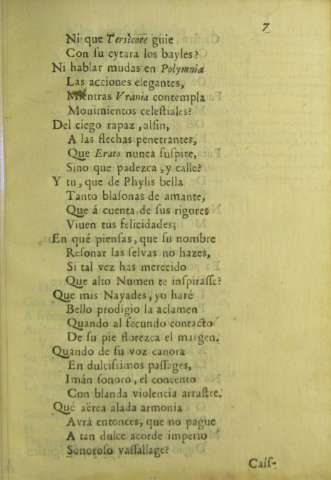 7
Ni que Tersicore guie
Con su cytara los bayles?
Ni hablar mudas en Polymnia
Las acciones elegantes,
Mientras Vrania contempla
Mouimientos celestiales?
Del ciego rapaz, alfin,
A las flechas penetrantes,
Que Erato nunca suspire,
Sino que padezca, y calle?
Y tu, que de Phylis bella
Tanto blasonas de amante,
Que á cuenta de sus rigores
Viuen tus felicidades;
En qué piensas, que su nombre
Resonar las selvas no hazes,
Si tal vez has merecido
Que alto Numen te inspirasse?
Que mis Nayades, yo haré
Bello prodigio la aclamen
Quando al fecundo contacto
De su pie florezca el margen.
Quando de su voz canora
En dulcissimos passages,
Imán sonoro, el concento
Con blanda violencia arrastre.
Qué aërea alada armonia
Avrá entonces, que no pague
A tan dulce acorde imperio
Sonoroso vassallage?
Cass-